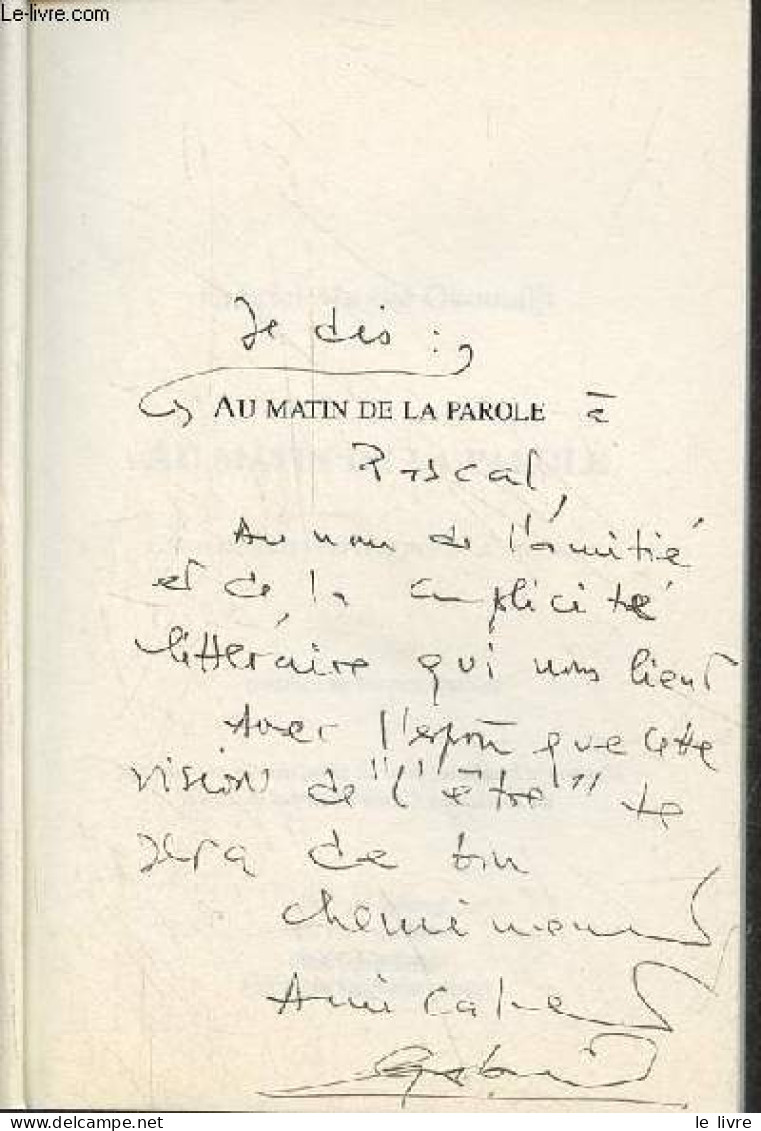 Le-livre.com
Je dis :
AU MATIN DE LA PAROLE à
Pascal,
Au nom de l'amitié
et de la complicité
littéraire qui nous lient
Avec l'espoir que cette
vision de "l'être" te
sera de bon
cheminement
Amicalement
le livre